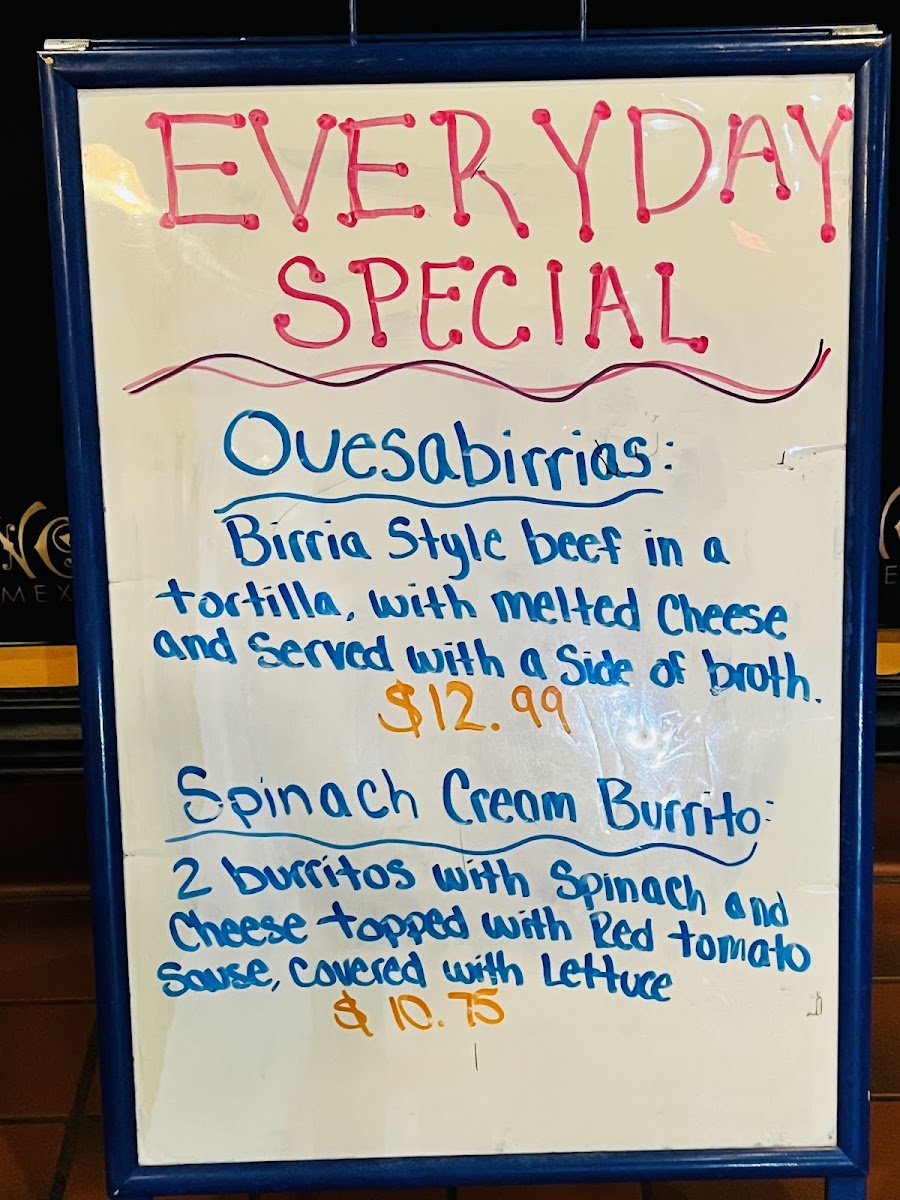 EVERYDAY
SPECIAL
Ouesabirrias:
Birria Style beef in a
tortilla, with melted Cheese
and Served with a Side of broth.
$12.99
Spinach Cream Burrito:
2 burritos with Spinach and
Cheese topped with Red tomato
Sause, Covered with Lettuce
$10.75
MEX